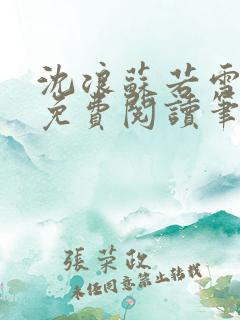 沈浪蘇若雪
免費閱讀筆
張荣政
未经同意禁止转载